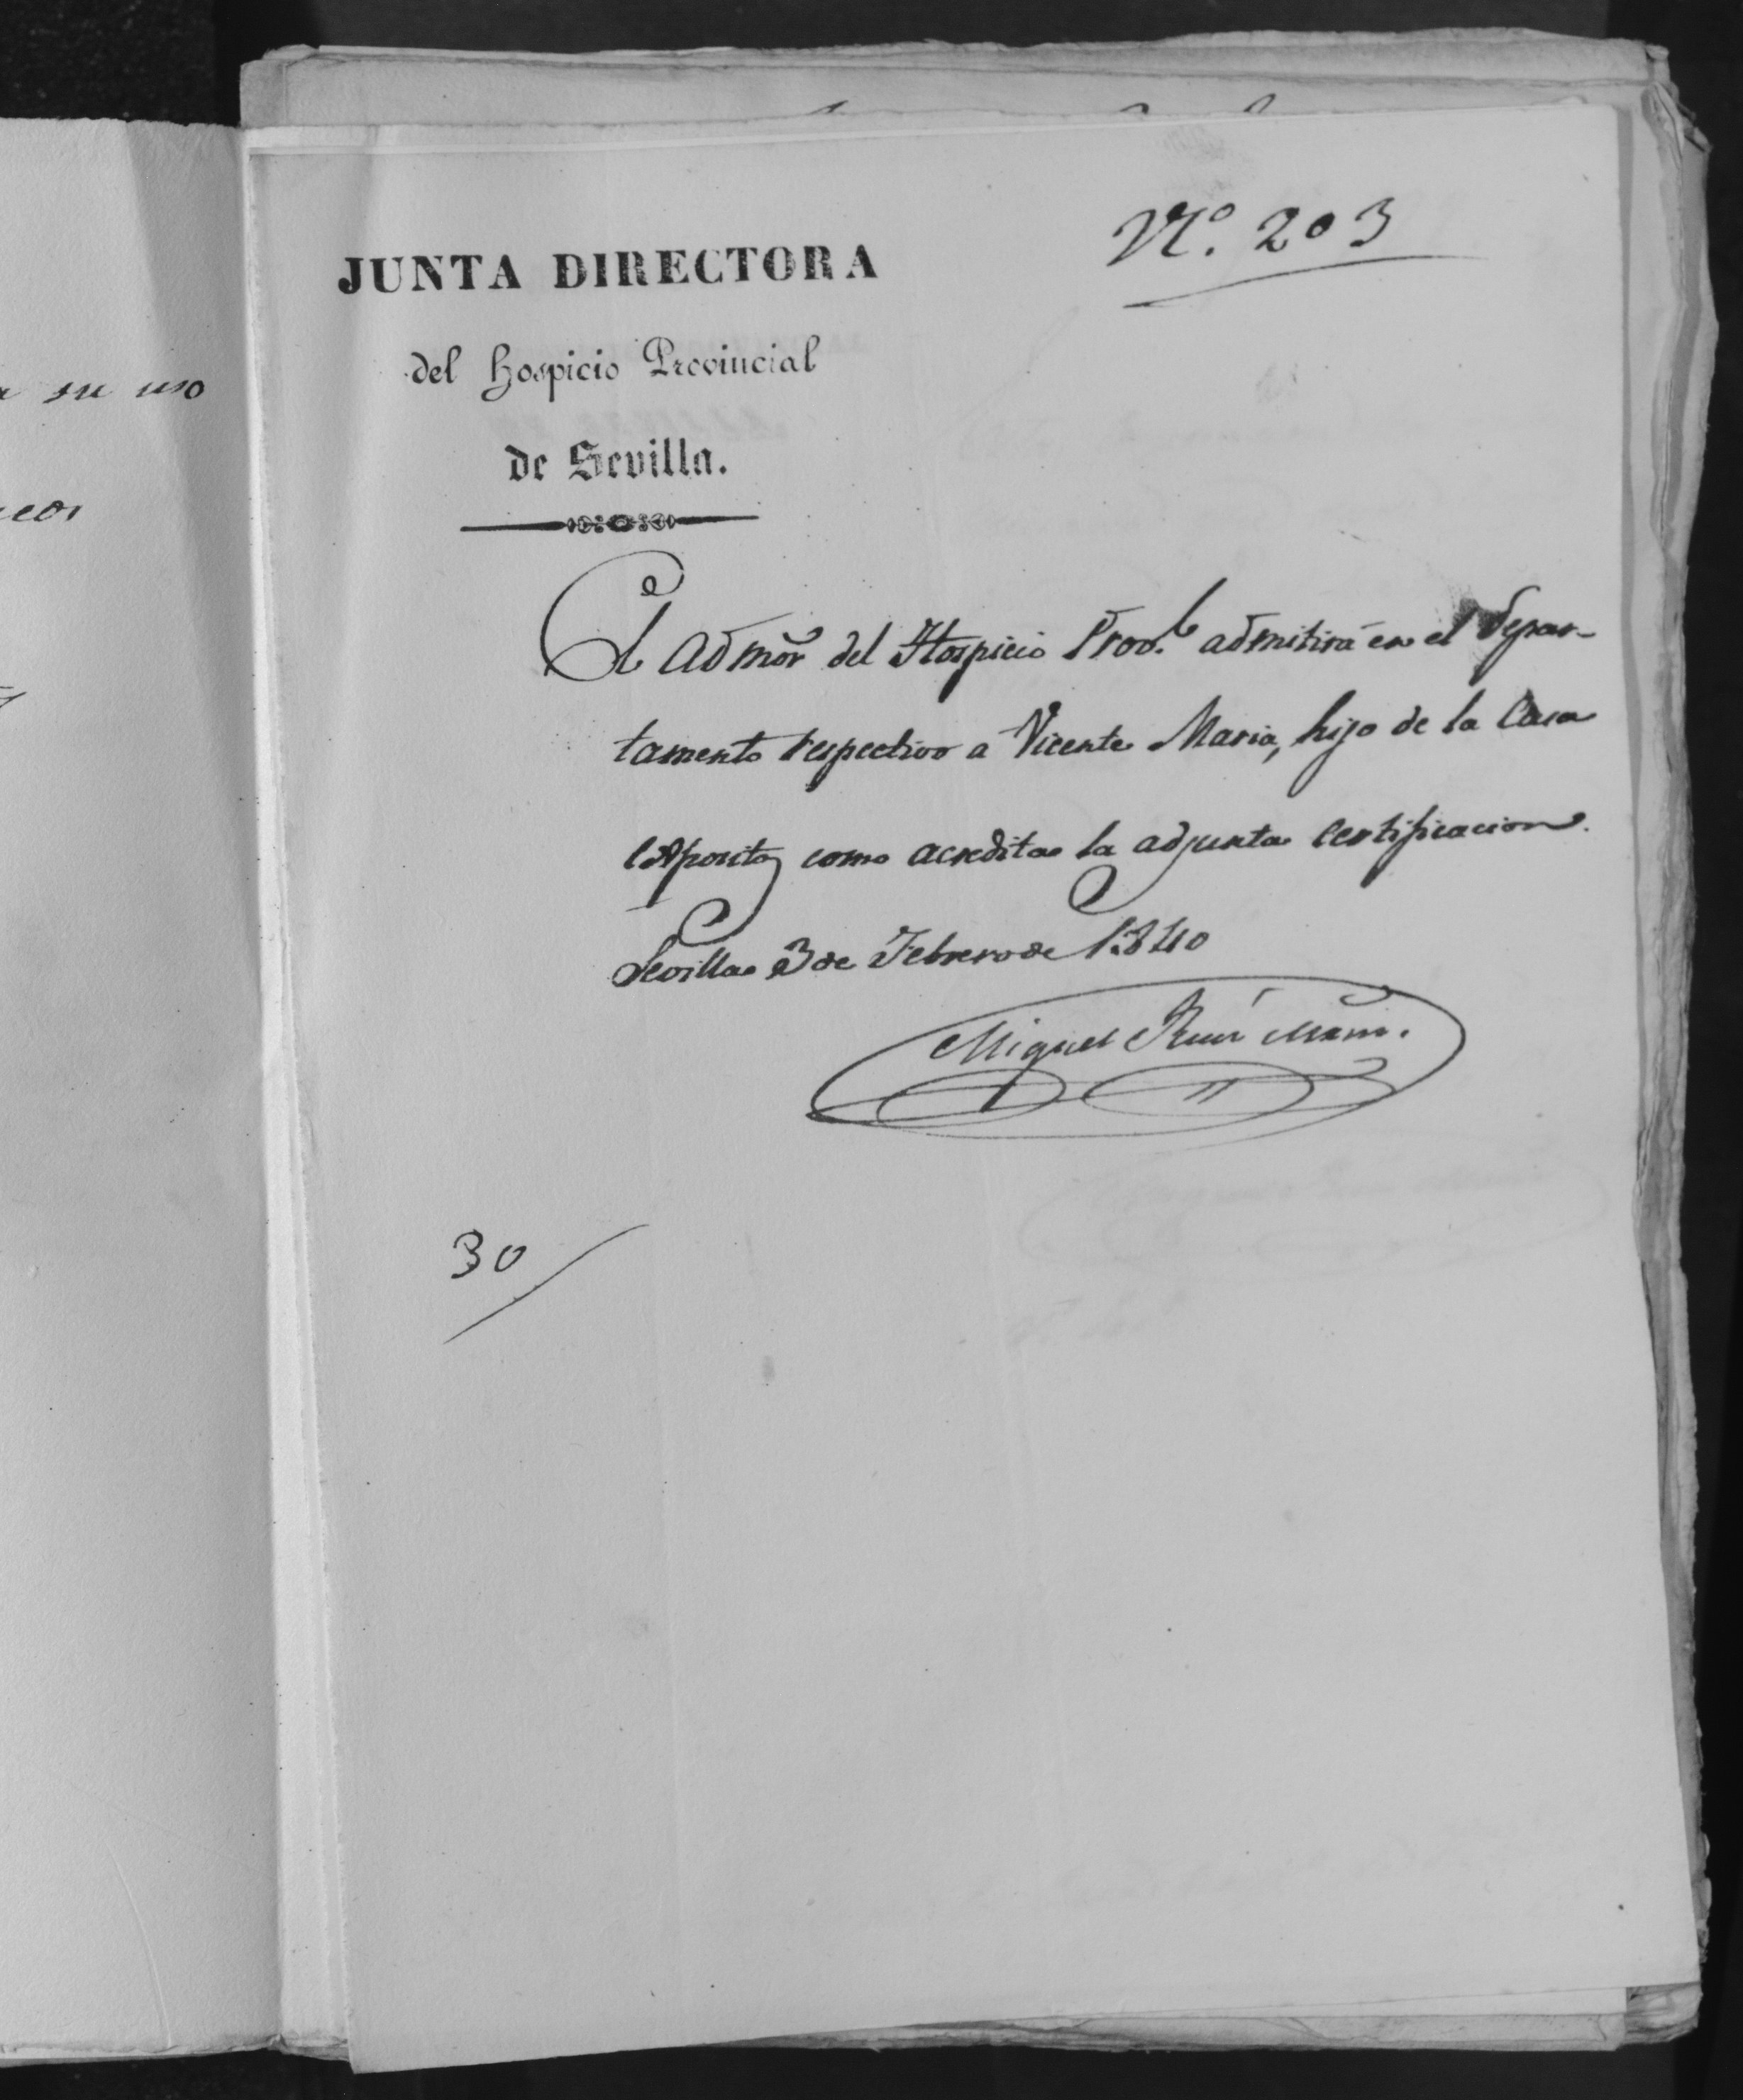 su uso
Nº. 203
JUNTA DIRECTORA
del Hospicio Provincial
de Sevilla.
El Admor del Hospicio Prov.l admitirá en el depar-
tamento respectivo a Vicente Maria, hijo de la Casa
Exposita, como acredita la adjunta certificacion.
Sevilla 3 de Febrero de 1840
Miguel Ruiz
30